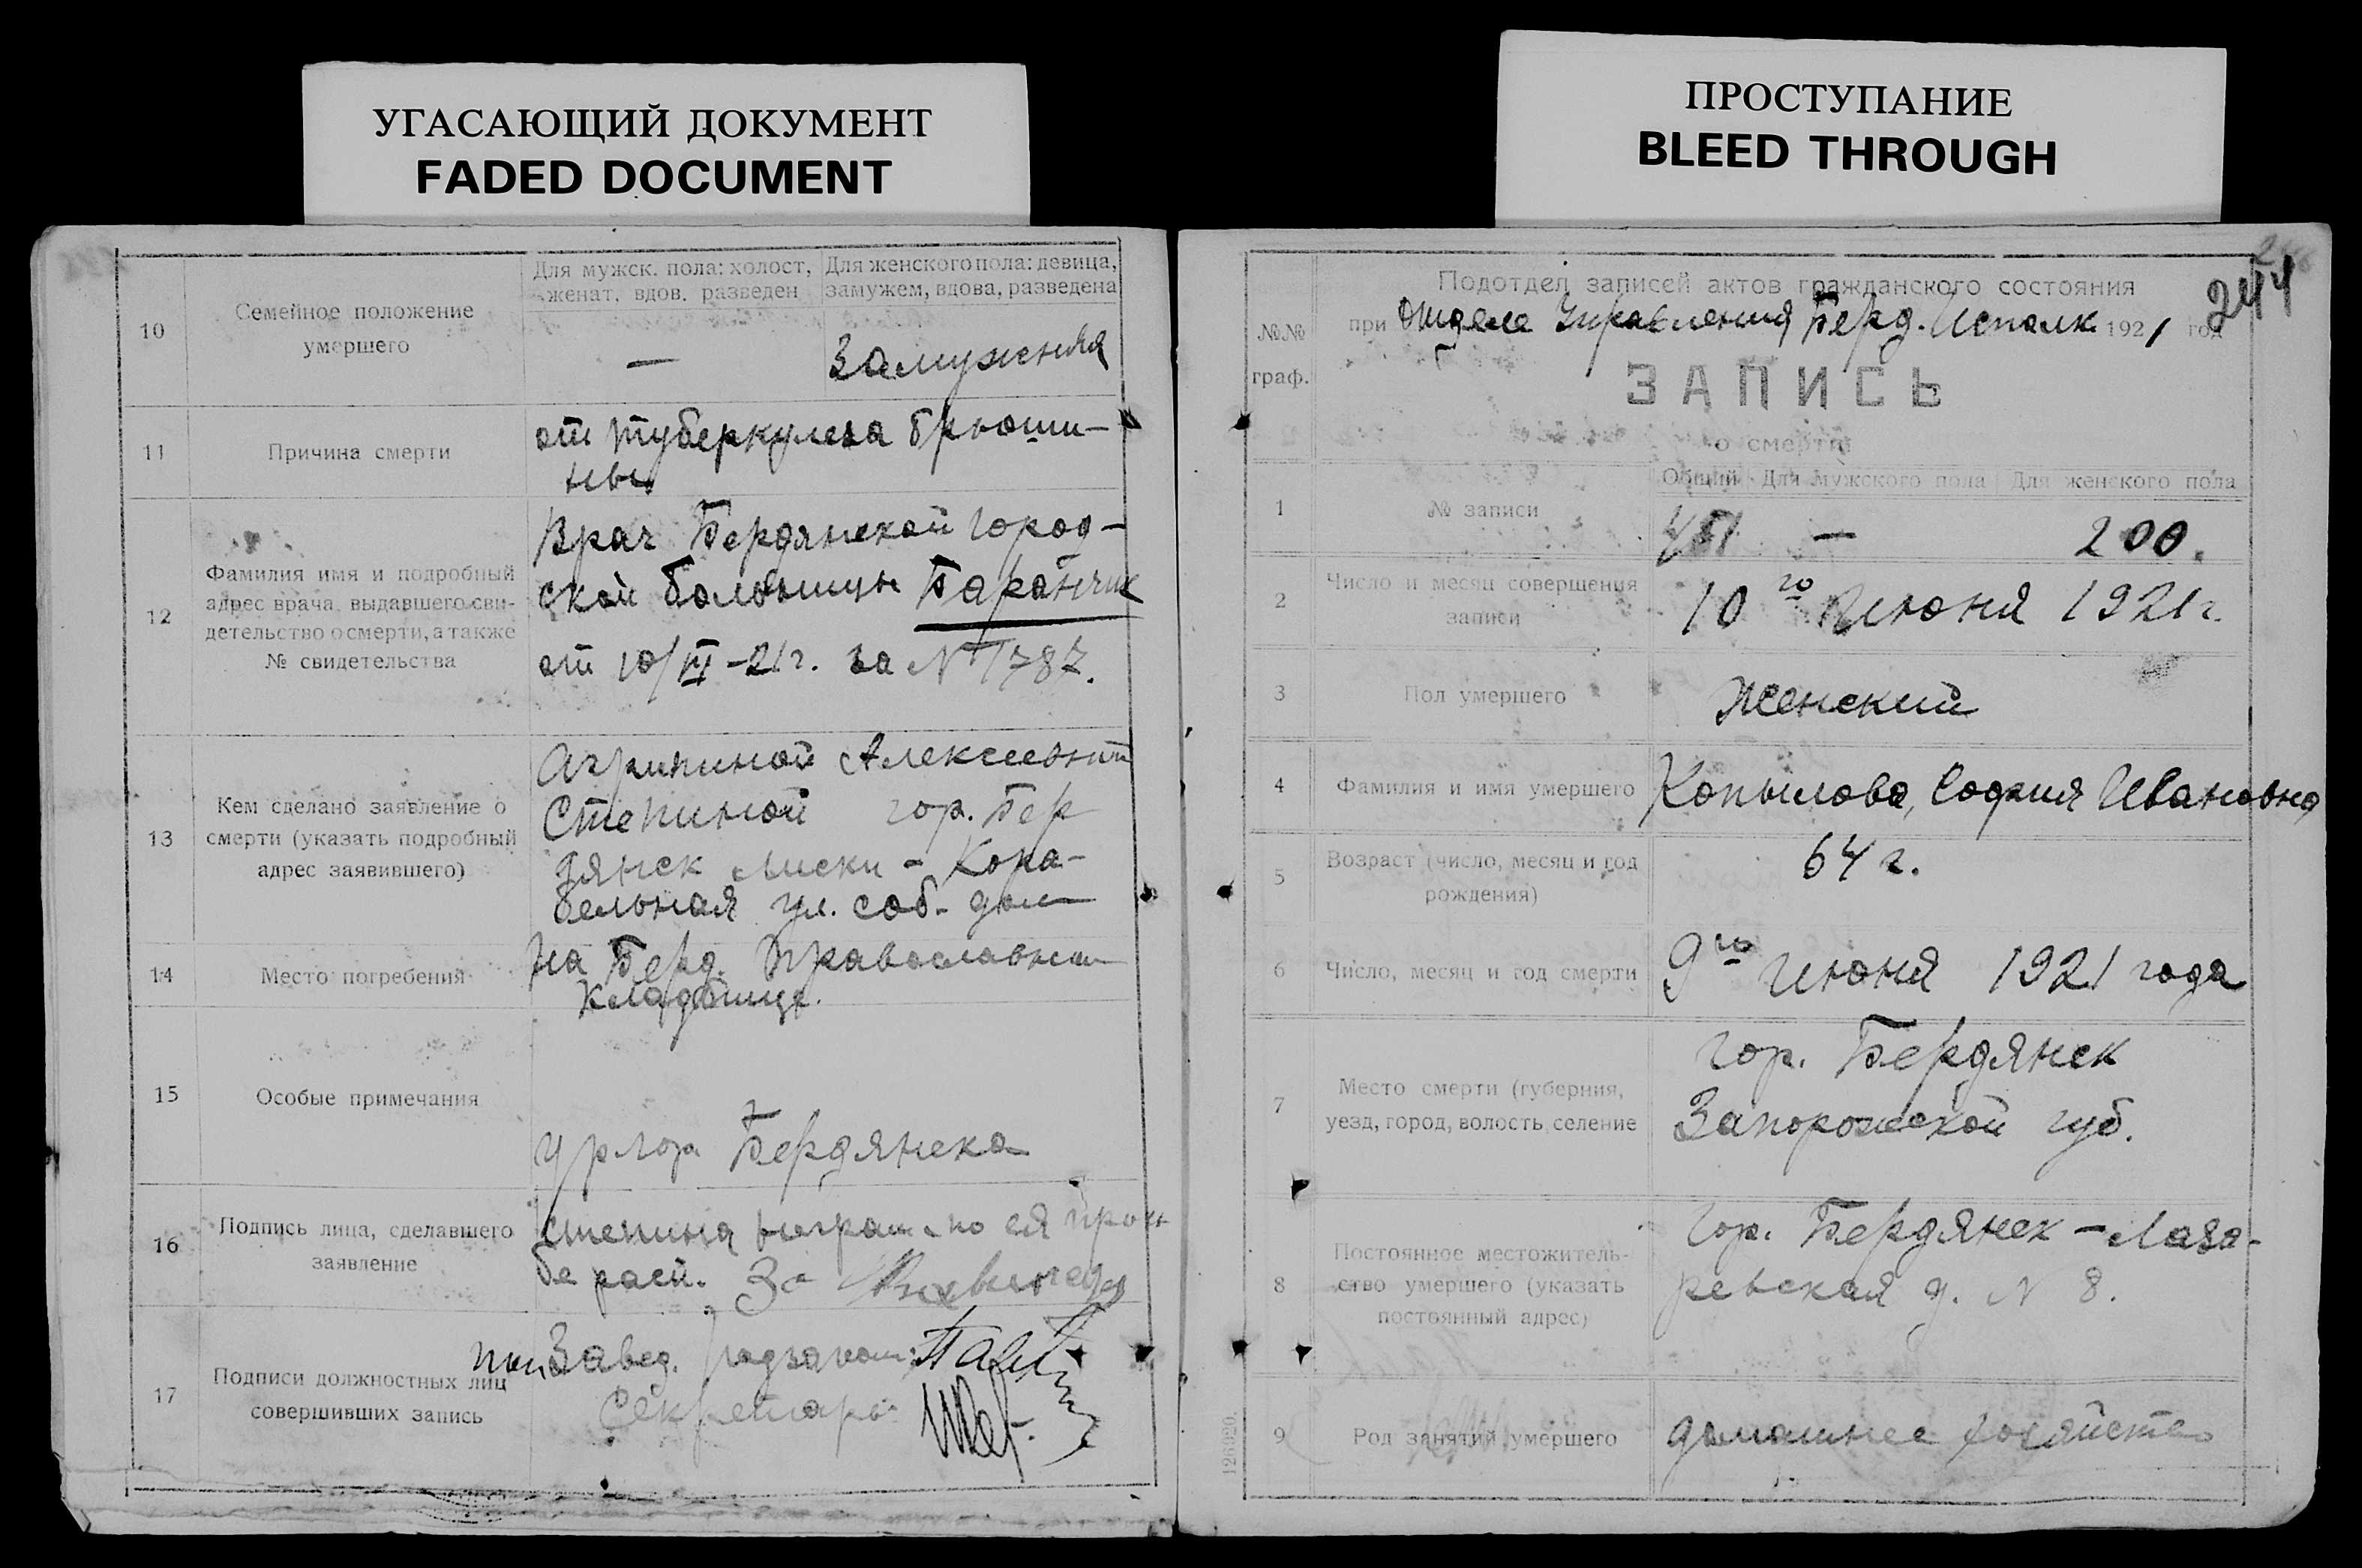 УГАСАЮЩИЙ ДОКУМЕНТ
FADED DOCUMENT
10
Семейное положение
умершего
Для мужск. пола: холост,
женат, вдов, разведен
Для женского пола: девица,
замужем, вдова, разведена
—
Замужняя
11
Причина смерти
от туберкулеза брюши-
ны
12
Фамилия имя и подробный
адрес врача, выдавшего сви-
детельство о смерти, а также
№ свидетельства
Врач Бердянской город-
ской больницы Баранчик
от 10/VI -21 г. за № 1787.
13
Кем сделано заявление о
смерти (указать подробный
адрес заявившего)
Агрипиной Алексеевной
Степиной гор. Бер
дянск Лиски - Кора-
бельная ул. соб. дом
14
Место погребения
на Берд. Православном
кладбище.
15
Особые примечания
Бердянска
16
Подпись лица, сделавшего
заявление
Степина неграм. по ея прось
бе расп. За
17
Подписи должностных лиц
совершивших запись
Завед.
Секретарь:
ПРОСТУПАНИЕ
BLEED THROUGH
244
№№
граф.
Подотдел записей актов гражданского состояния
при Отделе Управления Берд. Исполк. 1921 год
ЗАПИСЬ
о смерти
Общий Для мужского пола Для женского пола
1
№ записи
451 — 200.
2
Число и месяц совершения
записи
10го Июня 1921 г.
3
Пол умершего
Женский
4
Фамилия и имя умершего
Копылова, София Ивановна
5
Возраст (число, месяц и год
рождения)
64 г.
6
Число, месяц и год смерти
9го Июня 1921 года
7
Место смерти (губерния,
уезд, город, волость, селение
Гор. Бердянск
Запорожской губ.
8
Постоянное местожитель-
ство умершего (указать
постоянный адрес)
Гор. Бердянск - Лаза-
ревская д. № 8.
9
Род занятий умершего
домашнее хозяйство